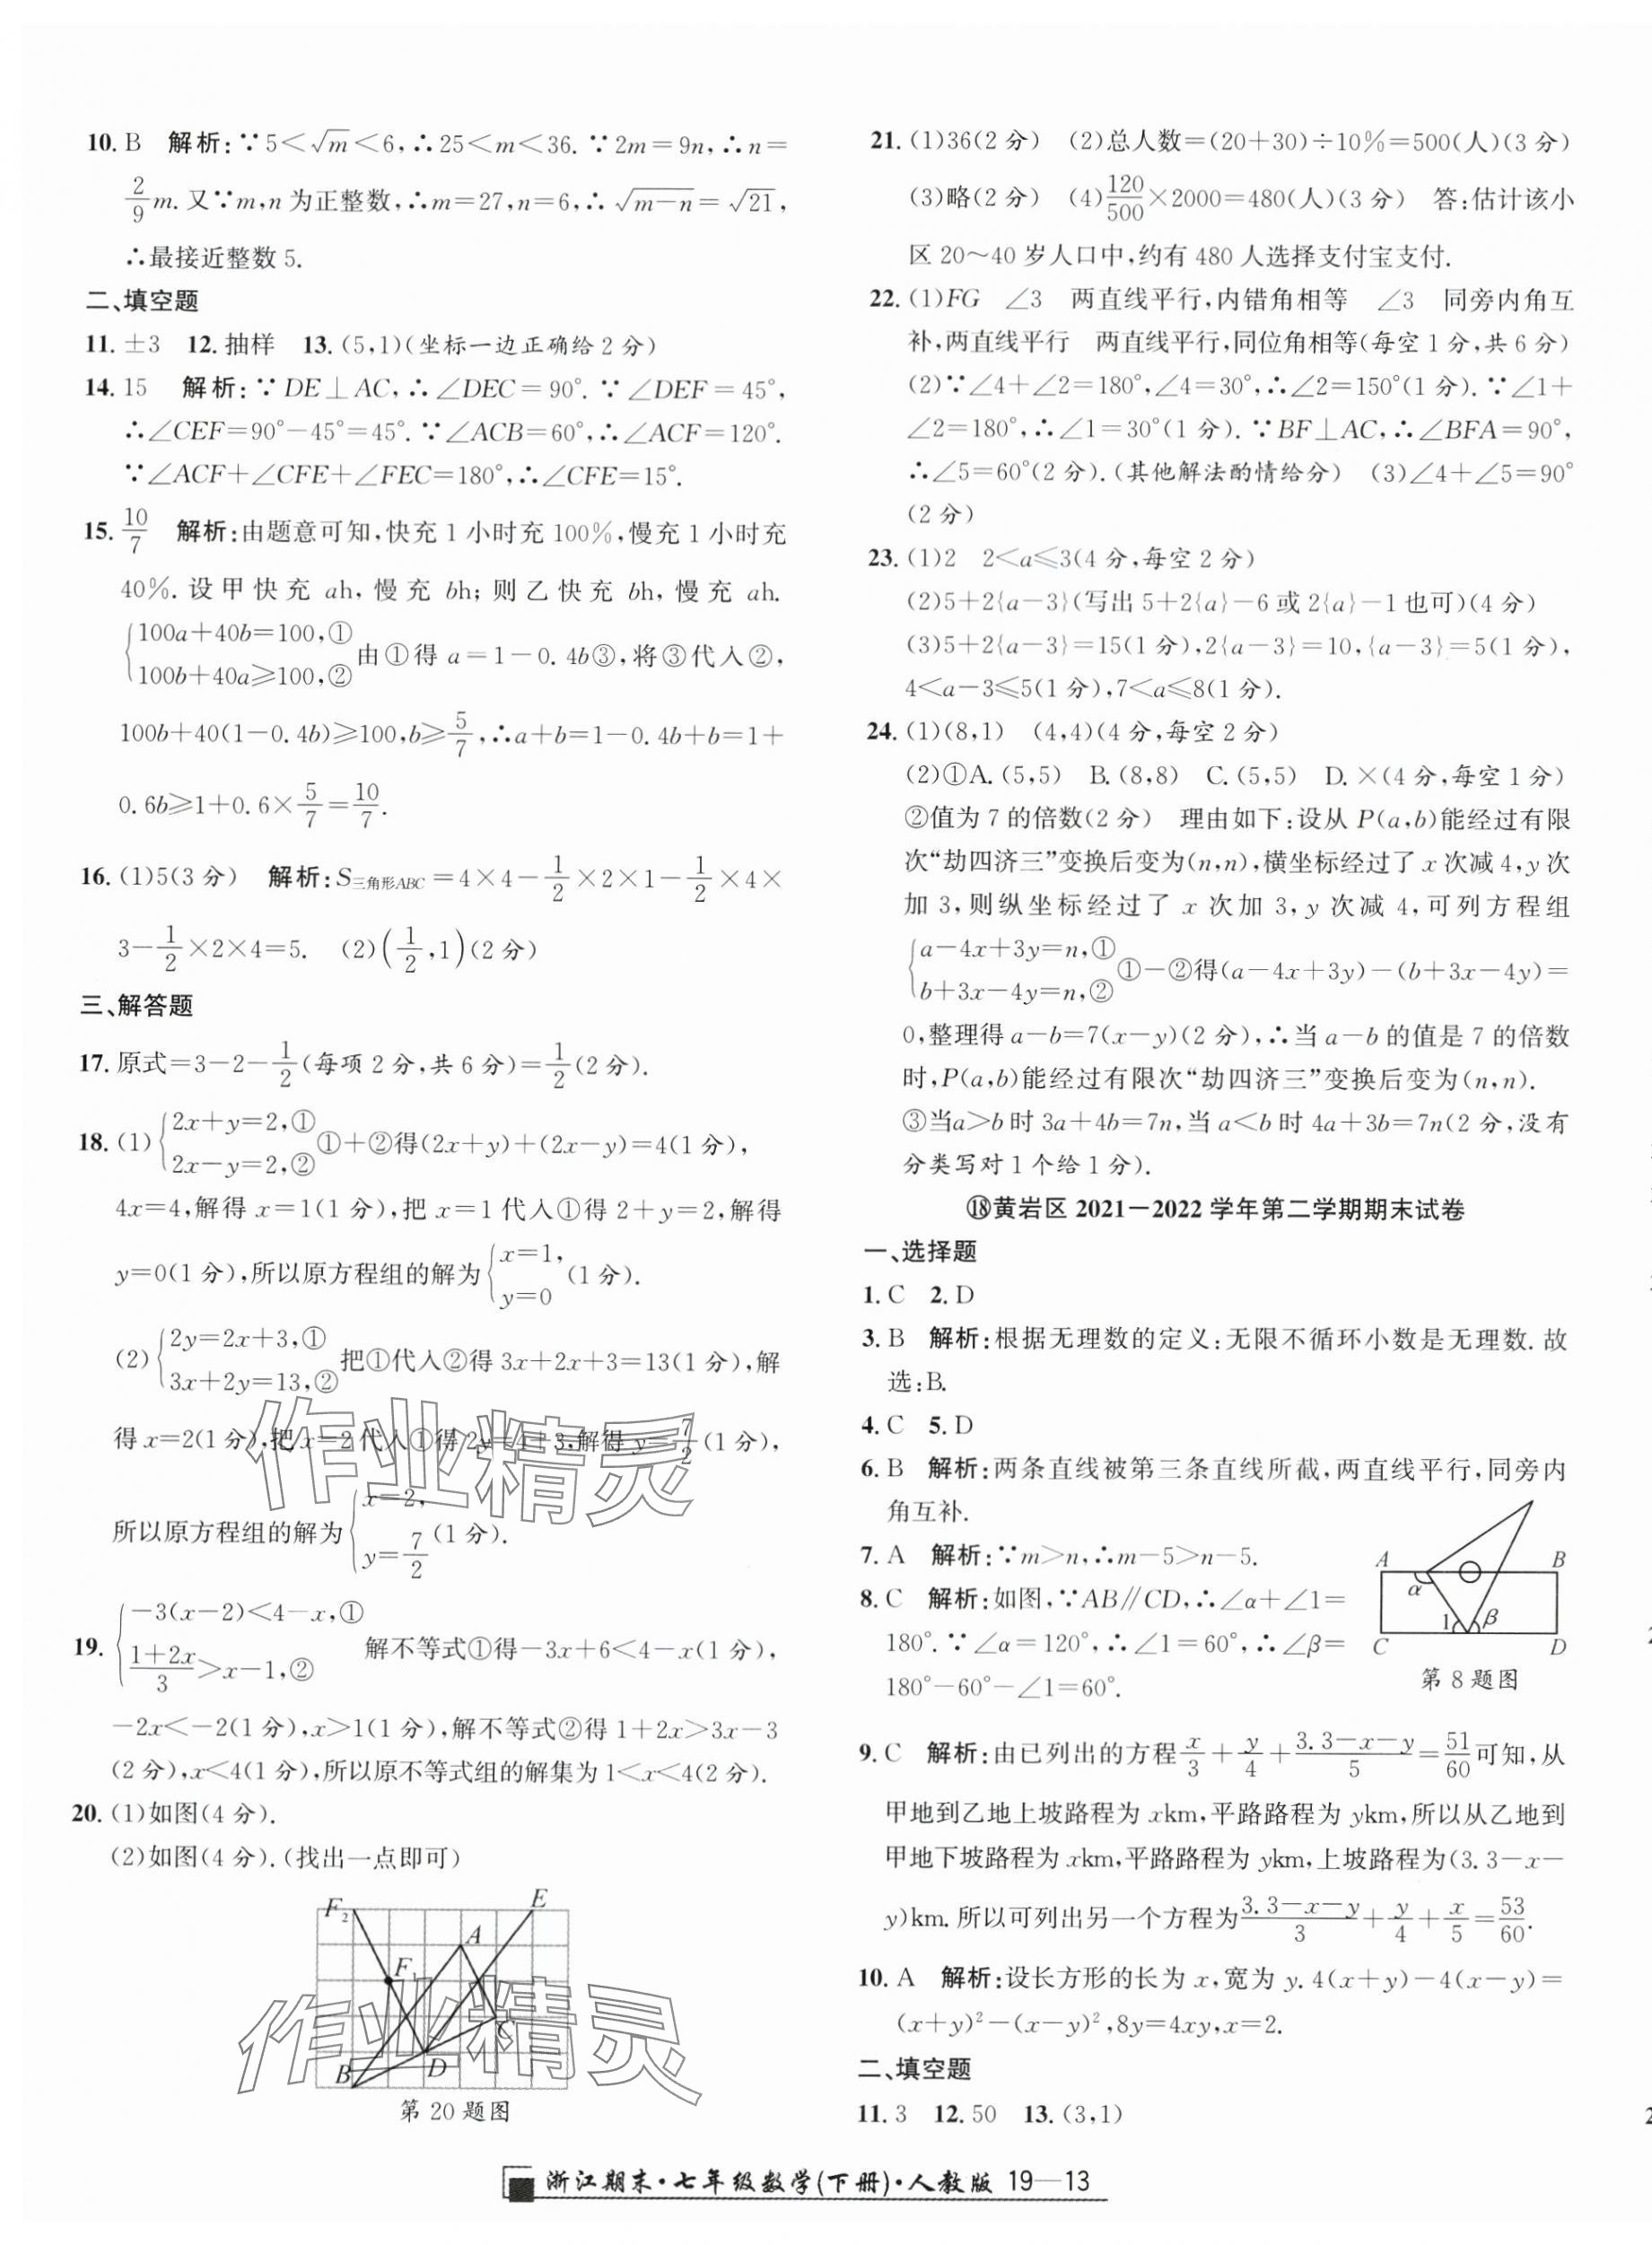 10. B 解析:∵5<√m<6,∴25<m<36. ∵2m=9n,∴n=
2/9 m. 又∵m,n为正整数,∴m=27,n=6,∴√(m-n)=√21,
∴最接近整数5.
二、填空题
11. ±3 12. 抽样 13. (5,1)(坐标一边正确给2分)
14. 15 解析:∵DE⊥AC,∴∠DEC=90°. ∵∠DEF=45°,
∴∠CEF=90°-45°=45°. ∵∠ACB=60°,∴∠ACF=120°.
∵∠ACF+∠CFE+∠FEC=180°,∴∠CFE=15°.
15. 10/7 解析:由题意可知,快充1小时充100%,慢充1小时充
40%. 设甲快充ah,慢充bh;则乙快充bh,慢充ah.
{100a+40b=100,①
100b+40a≥100,② 由①得a=1-0.4b③,将③代入②,
100b+40(1-0.4b)≥100,b≥5/7,∴a+b=1-0.4b+b=1+
0.6b≥1+0.6×5/7=10/7.
16. (1)5(3分) 解析:S三角形ABC=4×4-1/2×2×1-1/2×4×
3-1/2×2×4=5. (2)(1/2,1)(2分)
三、解答题
17. 原式=3-2-1/2(每项2分,共6分)=1/2(2分).
18. (1){2x+y=2,①
2x-y=2,② ①+②得(2x+y)+(2x-y)=4(1分),
4x=4,解得x=1(1分),把x=1代入①得2+y=2,解得
y=0(1分),所以原方程组的解为{x=1,
y=0 (1分).
(2){2y=2x+3,①
3x+2y=13,② 把①代入②得3x+2x+3=13(1分),解
得x=2(1分),把x=2代入①得2y=4+3,解得y=7/2(1分),
所以原方程组的解为{x=2,
y=7/2 (1分).
19. {-3(x-2)<4-x,①
(1+2x)/3>x-1,② 解不等式①得-3x+6<4-x(1分),
-2x<-2(1分),x>1(1分),解不等式②得1+2x>3x-3
(2分),x<4(1分),所以原不等式组的解集为1<x<4(2分).
20. (1)如图(4分).
(2)如图(4分).(找出一点即可)
F2 E
A
F1
C
B D
第20题图
21. (1)36(2分) (2)总人数=(20+30)÷10%=500(人)(3分)
(3)略(2分) (4)120/500×2000=480(人)(3分) 答:估计该小
区20~40岁人口中,约有480人选择支付宝支付.
22. (1)FG ∠3 两直线平行,内错角相等 ∠3 同旁内角互
补,两直线平行 两直线平行,同位角相等(每空1分,共6分)
(2)∵∠4+∠2=180°,∠4=30°,∴∠2=150°(1分). ∵∠1+
∠2=180°,∴∠1=30°(1分). ∵BF⊥AC,∴∠BFA=90°,
∴∠5=60°(2分).(其他解法酌情给分) (3)∠4+∠5=90°
(2分)
23. (1)2 2<a≤3(4分,每空2分)
(2)5+2{a-3}(写出5+2{a}-6或2{a}-1也可)(4分)
(3)5+2{a-3}=15(1分),2{a-3}=10,{a-3}=5(1分),
4<a-3≤5(1分),7<a≤8(1分).
24. (1)(8,1) (4,4)(4分,每空2分)
(2)①A. (5,5) B. (8,8) C. (5,5) D. ×(4分,每空1分)
②值为7的倍数(2分) 理由如下:设从P(a,b)能经过有限
次“劫四济三”变换后变为(n,n),横坐标经过了x次减4,y次
加3,则纵坐标经过了x次加3,y次减4,可列方程组
{a-4x+3y=n,①
b+3x-4y=n,② ①-②得(a-4x+3y)-(b+3x-4y)=
0,整理得a-b=7(x-y)(2分),∴当a-b的值是7的倍数
时,P(a,b)能经过有限次“劫四济三”变换后变为(n,n).
③当a>b时3a+4b=7n,当a<b时4a+3b=7n(2分,没有
分类写对1个给1分).
⑱黄岩区2021-2022学年第二学期期末试卷
一、选择题
1. C 2. D
3. B 解析:根据无理数的定义:无限不循环小数是无理数. 故
选:B.
4. C 5. D
6. B 解析:两条直线被第三条直线所截,两直线平行,同旁内
角互补.
7. A 解析:∵m>n,∴m-5>n-5.
8. C 解析:如图,∵AB∥CD,∴∠α+∠1=
180°. ∵∠α=120°,∴∠1=60°,∴∠β=
180°-60°-∠1=60°.
A B
α
1 β
C D
第8题图
9. C 解析:由已列出的方程x/3+y/4+(3.3-x-y)/5=51/60可知,从
甲地到乙地上坡路程为xkm,平路路程为ykm,所以从乙地到
甲地下坡路程为xkm,平路路程为ykm,上坡路程为(3.3-x-
y)km. 所以可列出另一个方程为(3.3-x-y)/3+y/4+x/5=53/60.
10. A 解析:设长方形的长为x,宽为y. 4(x+y)-4(x-y)=
(x+y)²-(x-y)²,8y=4xy,x=2.
二、填空题
11. 3 12. 50 13. (3,1)
浙江期末·七年级数学(下册)·人教版 19—13
作业精灵
作业精灵